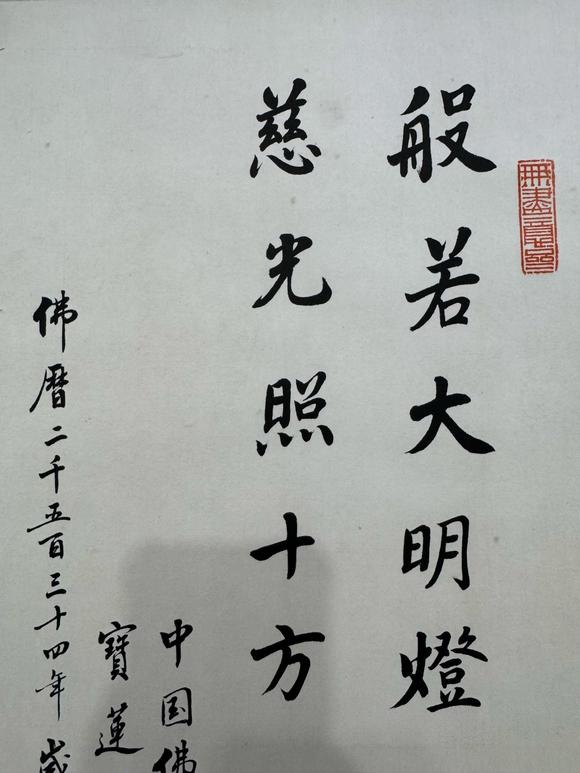 般若大明燈
慈光照十方
中国佛
寶蓮
佛曆二千五百三十四年歲